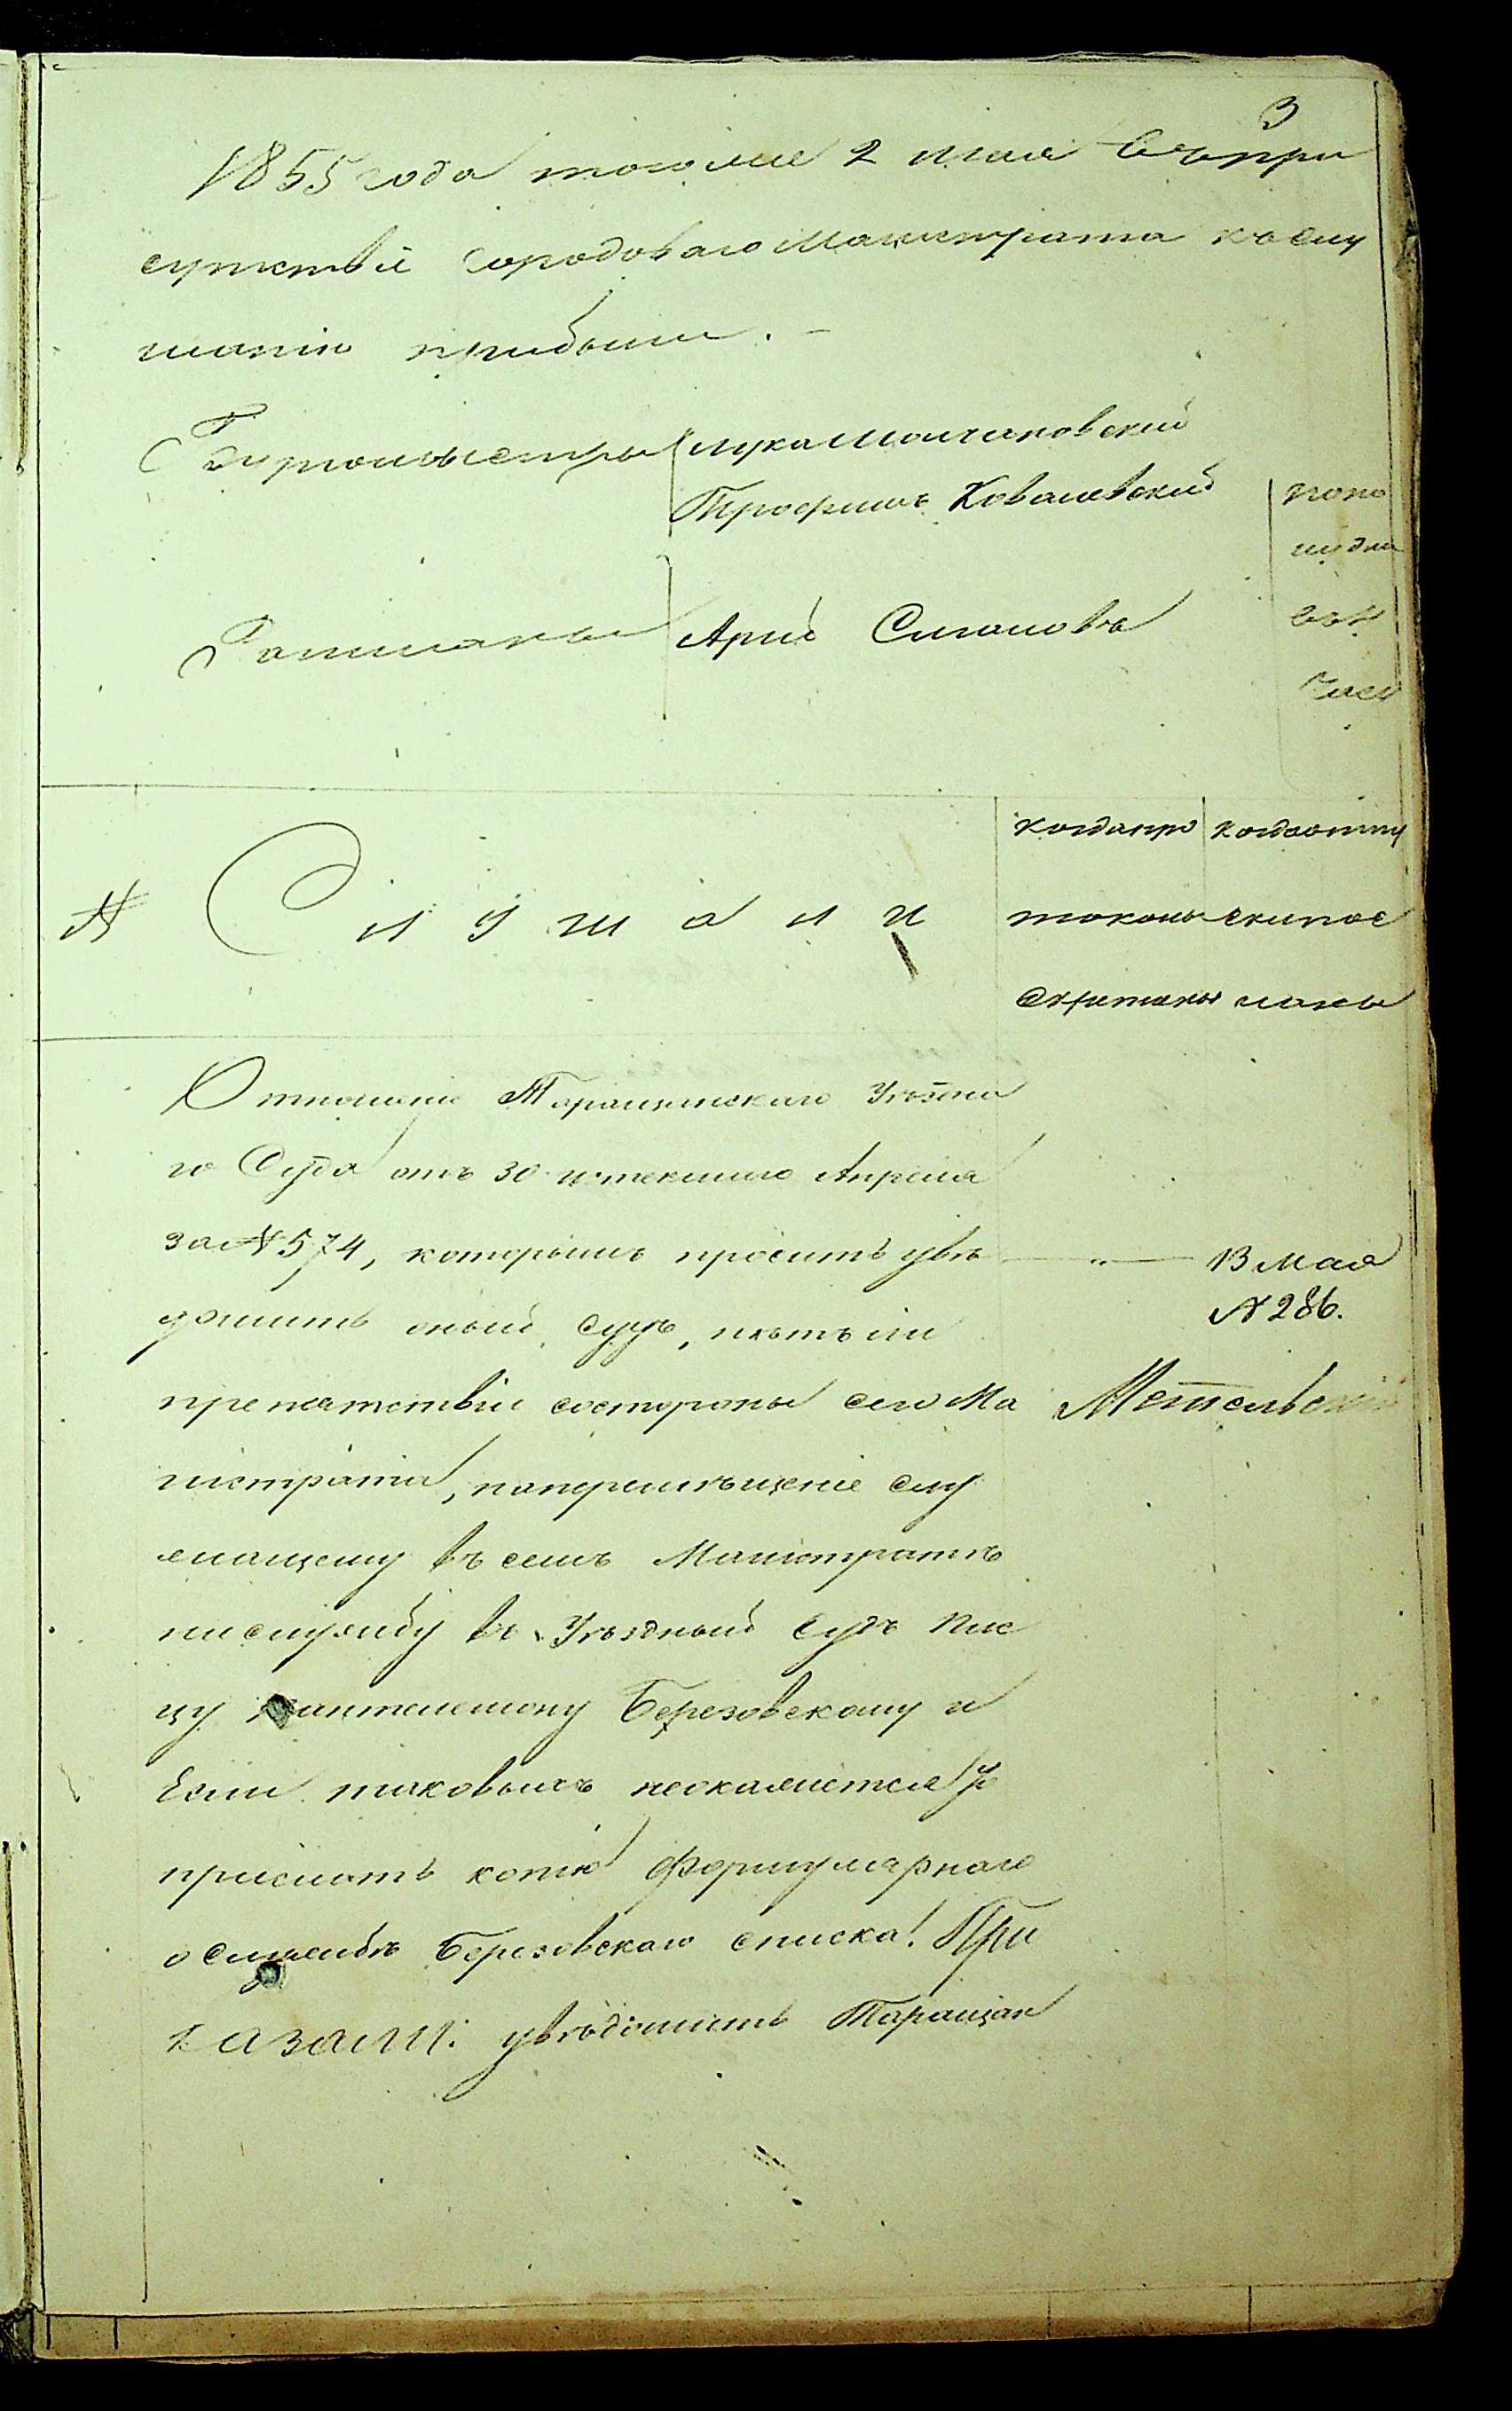 3
1855 года тогоже 2 мая Въ при
сутствіе Городоваго Магистрата къ слу
шанію прибыли. –
Бургомистры Лука Молчановскій
Трофимъ Ковалевскій
попо
лудни
въ
часу
Ратманы Арій Смоловъ
№ Слушали
когда про
токолъ
скрепленъ
когда отпу
скъ пос
ланъ
Отношеніе Таращанскаго Уѣздна
го Суда отъ 30 истекшаго Апреля
за № 574, которымъ проситъ увѣ
домить оный Судъ, нѣтъ ли
препятствія состороны сего Ма
гистрата, наперемѣщеніе слу
жащему въ семъ Магистратѣ
на службу въ Уѣздный Судъ Пис
цу Пантелемону Березовскому и
Если таковыхъ неокажется то
прислать копію Формулярнаго
о Службѣ Березовскаго списка. При
казали: увѣдомить Таращан
— „ — 13 Мая
№ 286.
Метельскій